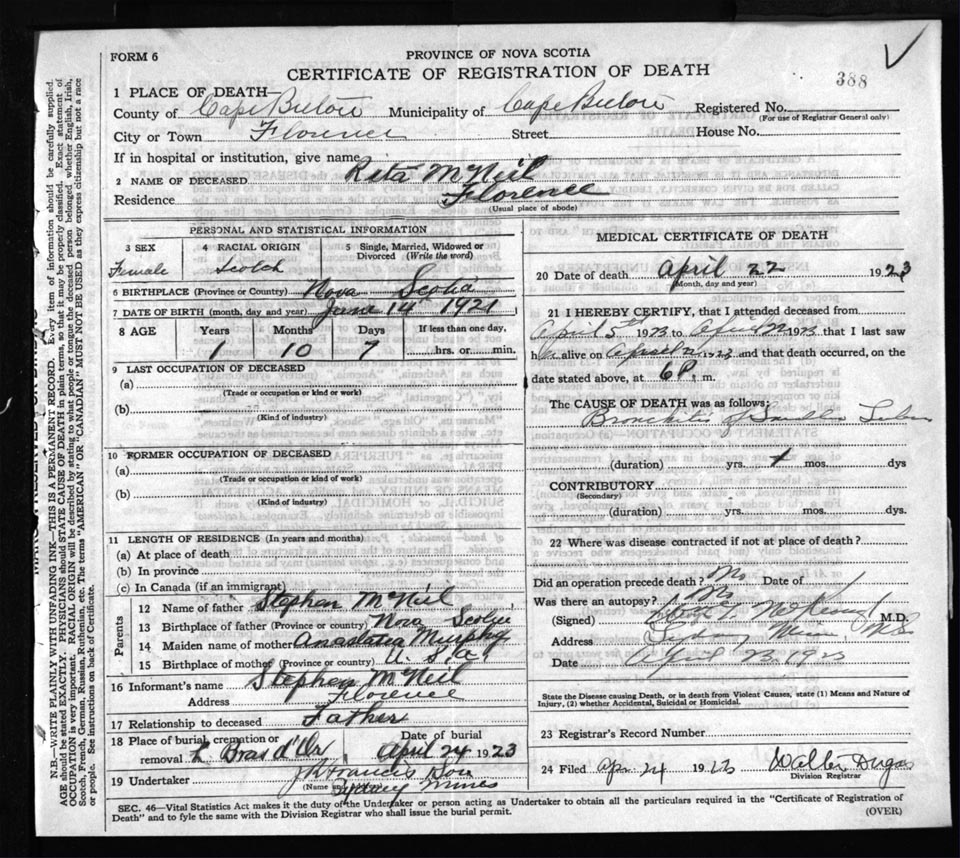 FORM 6
PROVINCE OF NOVA SCOTIA
CERTIFICATE OF REGISTRATION OF DEATH
388
1 PLACE OF DEATH—
County of Cape Breton Municipality of Cape Breton Registered No.
(For use of Registrar General only)
City or Town Florence Street House No.
If in hospital or institution, give name
2 NAME OF DECEASED Rita McNeil
Residence Florence
(Usual place of abode)
PERSONAL AND STATISTICAL INFORMATION
3 SEX 4 RACIAL ORIGIN 5 Single, Married, Widowed or Divorced (Write the word)
Female Scotch
6 BIRTHPLACE (Province or Country) Nova Scotia
7 DATE OF BIRTH (month, day and year) June 14th 1921
8 AGE Years Months Days If less than one day,
1 10 7 hrs. or min.
9 LAST OCCUPATION OF DECEASED
(a)
(Trade or occupation or kind or work)
(b)
(Kind of industry)
10 FORMER OCCUPATION OF DECEASED
(a)
(Trade or occupation or kind of work)
(b)
(Kind of industry)
11 LENGTH OF RESIDENCE (In years and months)
(a) At place of death
(b) In province
(c) In Canada (if an immigrant)
Parents
12 Name of father Stephen McNeil
13 Birthplace of father (Province or country) Nova Scotia
14 Maiden name of mother Murphy
15 Birthplace of mother (Province or country) U.S.A.
16 Informant's name Stephen McNeil
Address Florence
17 Relationship to deceased Father
18 Place of burial, cremation or removal L Bras d'Or
Date of burial April 24 1923
19 Undertaker J R Francis Son
(Name Sydney Mines
MEDICAL CERTIFICATE OF DEATH
20 Date of death April 22 1923
(Month, day and year)
21 I HEREBY CERTIFY, that I attended deceased from
April 5th 1923 to April 22 1923 that I last saw
h alive on April 21 1923 and that death occurred, on the
date stated above, at 6 P. m.
The CAUSE OF DEATH was as follows:
Bronchitis of Smaller Tubes
(duration) yrs. mos. dys
CONTRIBUTORY
(Secondary)
(duration) yrs. mos. dys.
22 Where was disease contracted if not at place of death?
Did an operation precede death? No Date of
Was there an autopsy? No
(Signed) M.D.
Address Sydney Mines N.S.
Date April 23. 1923
State the Disease causing Death, or in death from Violent Causes, state (1) Means and Nature of
Injury, (2) whether Accidental, Suicidal or Homicidal.
23 Registrar's Record Number
24 Filed Apr. 24 1923 Walter Dugas
Division Registrar
SEC. 46—Vital Statistics Act makes it the duty of the Undertaker or person acting as Undertaker to obtain all the particulars required in the "Certificate of Registration of
Death" and to fyle the same with the Division Registrar who shall issue the burial permit.
(OVER)
N.B.—WRITE PLAINLY WITH UNFADING INK—THIS IS A PERMANENT RECORD. Every item of information should be carefully supplied.
AGE should be stated EXACTLY. PHYSICIANS should STATE CAUSE OF DEATH in plain terms, so that it may be properly classified. Exact statement of
OCCUPATION is very important. RACIAL ORIGIN will be described by stating to what people or tongue the deceased person belonged, whether English, Irish,
Scotch, French, German, Russian, Ruthenian, etc. The terms "AMERICAN" OR "CANADIAN" MUST NOT BE USED as they express citizenship but not a race
or people. See instructions on back of Certificate.